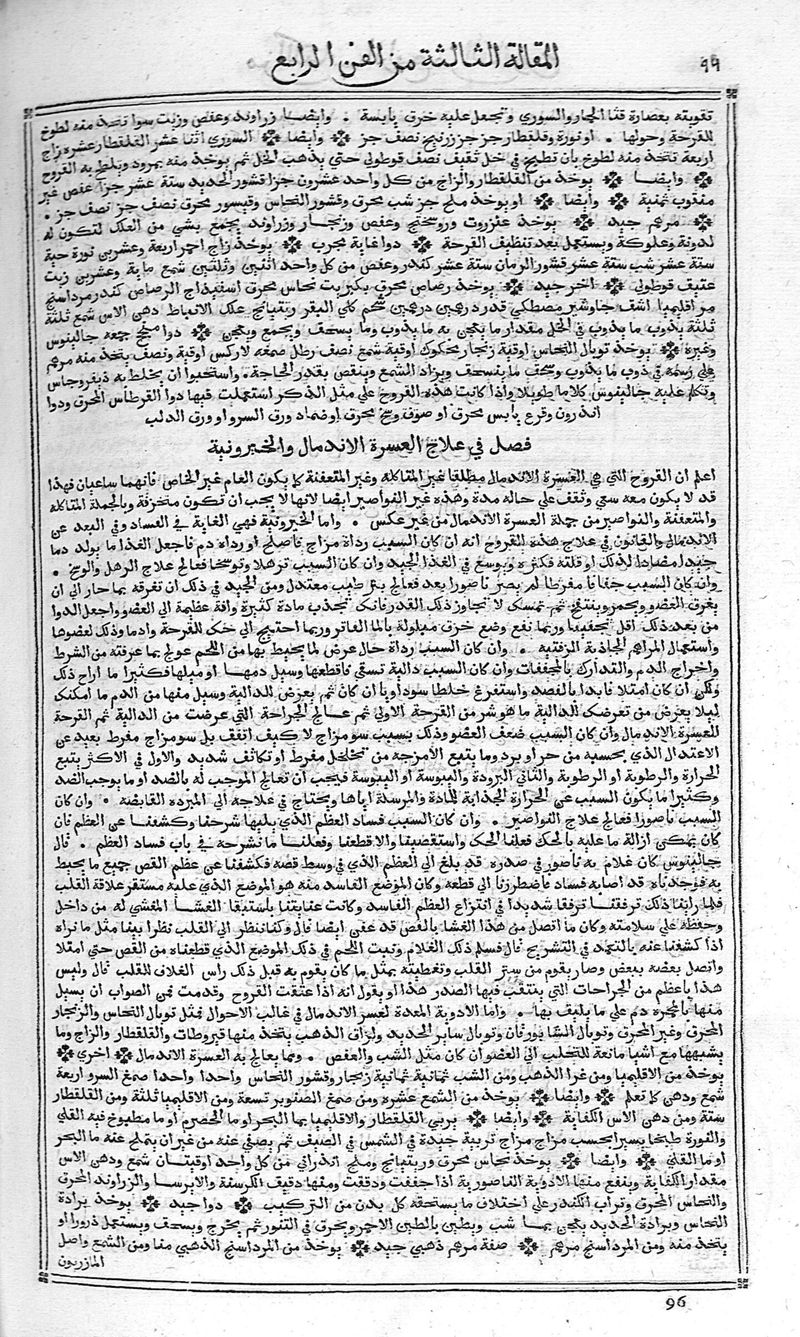 ٩٩ المقالة الثالثة من الفن الرابع
تقويته بعصارة قثا الحمار والسوري وتجعل عليه خرق يابسة . وايضا زراوند وعفص وزيت سوا تتخذ منه لطوخ
للقرحة وحولها . او نورة وقلقطار جز جز زرنيخ نصف جز وايضا السوري اثنا عشر القلقطار عشرة زاج
اربعة تتخذ منه لطوخ بان تطبخ في خل ثقيف نصف قوطولي حتي يذهب الخل ثم يوخذ منه بمرود ويلطخ به القروح
وايضا يوخذ من القلقطار والزاج من كل واحد عشرون جزا قشور الحديد ستة عشر جزا عفص غير
مثقوب ثمنية وايضا او يوخذ ملح جز شب محرق وقشور النحاس وقيسور محرق نصف جز نصف جز .
مرهم جيد يوخذ عنزروت وروسختج وعفص وزنجار وزراوند يجمع بشي من العلك لتكون له
لدونة وعلوكة ويستعمل بعد تنظيف القرحة دوا غاية مجرب يوخذ زاج احمر اربعة وعشرين نورة حية
ستة عشر شب ستة عشر قشور الرمان ستة عشر كندر وعفص من كل واحد اثنين وثلثين شمع ماية وعشرين زيت
عتيق قوطولي اخر جيد يوخذ رصاص محرق بكبريت نحاس محرق اسفيداج الرصاص كندر مرداسنج
مر اقليميا اشق جاوشير مصطكي قدر درهمين درهمين شحم كلي البقر ريتيانج علك الانباط دهن الاس شمع ثلثة
ثلثة يذوب ما يذوب في الخل مقدار ما يعجن به ما يذوب وما يسحف ويجمع ويعجن دوا سنج جمعه جالينوس
وغيره يوخذ توبال النحاس اوقية زنجار محكوك اوقية شمع نصف رطل صمغه لاركس اوقية ونصف يتخذ منه مرهم
علي رسمه في ذوب ما يذوب وسحف ما ينسحف ويزاد الشمع وينقص بقدر الحاجة . واستحبوا ان يخلط به ديفروجاس
وتكلم عليه جالينوس كلاما طويلا واذا كانت هذه القروح علي مثل الذكر استعملت فيها دوا القرطاس المحرق ودوا
اندرون وقرع يابس محرق او صوف وسخ محرق او ضماد ورق السرو او ورق الدلب
فصل في علاج العسرة الاندمال والخيرونية
اعلم ان القروح التي هي العسرة الاندمال مطلقا غير المتاكلة وغير المتعفنة كما يكون العام غير الخاص فانهما ساعيان فهذا
قد لا يكون معه سعي وتقف علي حاله مدة وهذه غير النواصير ايضا لانها لا يجب ان تكون متخزفة وبالجملة المتاكلة
والمتعفنة والنواصير من جملة العسرة الاندمال من غير عكس . واما الخيرونية فهي الغاية في الفساد وفي البعد عن
الاندمال والقانون في علاج هذه القروح انه ان كان السبب رداة مزاج فاصلح او رداة دم فاجعل الغذا ما يولد دما
جيدا مضادا لذلك او قلته فكثره وبوسع في الغذا الجيد وان كان السبب ترهلا وتوسخا فعالج علاج الرهل والوسخ .
وان كان السبب جفافا مفرطا لم يصر ناصورا بعد فعالج بترطيب معتدل ومن الجيد في ذلك ان تغرقه بما حار الي ان
يعرق العضو ويحمر وينتفخ ثم تمسك لا تجاوز ذلك القدر فانك تجذب مادة كثيرة وافة عظيمة الي العضو واجعل الدوا
من بعد ذلك اقل تجفيفا وربما نفع وضع خرق مبلولة بالما الفاتر وربما احتيج الي حك للقرحة وادما وذلك لعضوها
واستعمال المراهم الجاذبة الزفتية . وان كان السبب رداة حال عرض لما يحيط بها من اللحم عولج بما عرفته من الشرط
واخراج الدم والتدارك بالمجففات وان كان السبب دالية تسقي فاقطعها وسيل دمها او ميلها فكثيرا ما اراح ذلك
ولكن ان كان امتلا فابدا بالفصد واستفرغ خلطا سوداويا ان كان ثم تعرض للدالية وسيل منها من الدم ما امكنك
ليلا يعرض من تعرضك للدالية ما هو شر من القرحة الاولي ثم عالج الجراحة التي عرضت من الدالية ثم القرحة
للعسرة الاندمال وان كان السبب ضعف العضو وذلك بسبب سومزاج لا كيف اتفق بل سومزاج مفرط بعيد عن
الاعتدال الذي بحسبه من حر او برد وما يتبع الامزجة من تخلخل مفرط او تكاثف شديد والاول في الاكثر يتبع
الحرارة والرطوبة او الرطوبة والثاني البرودة واليبوسة او اليبوسة فيجب ان تعالج الموجب له بالضد او ما يوجب الضد
وكثيرا ما يكون السبب عن الحرارة الجذابة للمادة والمرسلة اياها ويحتاج في علاجه الي المبردة القابضة . وان كان
السبب ناصورا فعالج علاج النواصير . وان كان السبب فساد العظم الذي يليها شرحنا وكشفنا عن العظم فان
كان يمكن ازالة ما عليه بالحك فعلنا الحك واستقصينا والا قطعنا وفعلنا ما نشرحه في باب فساد العظم . قال
جالينوس كان غلام به ناصور في صدره قد بلغ الي العظم الذي في وسط قصه فكشفنا عن عظم القص جميع ما يحيط
به فوجدناه قد اصابه فساد فاضطررنا الي قطعه وكان الموضع الفاسد منه هو الموضع الذي عليه مستقر علاقة القلب
فلما راينا ذلك ترفقنا ترفقا شديدا في انتزاع العظم الفاسد وكانت عنايتنا باستبقا الغشا المغشي له من داخل
وحفظه علي سلامته وكان ما اتصل من هذا الغشا بالقص قد عفن ايضا قال وكنا ننظر الي القلب نظرا بينا مثل ما نراه
اذا كشفنا عنه بالتعمد في التشريح قال فسلم ذلك الغلام ونبت اللحم في ذلك الموضع الذي قطعناه من القص حتي امتلا
واتصل بعضه ببعض وصار يقوم من ستر القلب وتغطيته بمثل ما كان يقوم به قبل ذلك راس الغلاف للقلب قال وليس
هذا باعظم من الجراحات التي ينتقب فيها الصدر هذا او يقول انه اذا عتقت القروح وقدمت فمن الصواب ان يسيل
منها باجره دم علي ما يليق بها . واما الادوية المعدة لعسر الاندمال في غالب الاحوال فمثل توبال النحاس والزنجار
المحرق وغير المحرق وتوبال الشابورقان وتوبال ساير الحديد ولزاق الذهب يتخذ منها قيروطات والقلقطار والزاج وما
يشبهها مع اشيا مانعة للتحلب الي العضو ان كان مثل الشب والعفص . ومما يعالج به العسرة الاندمال اخري
يوخذ من الاقليميا ومن غرا الذهب ومن الشب ثمانية ثمانية زنجار وقشور النحاس واحدا واحدا صمغ السرو اربعة
شمع ودهن كما تعلم وايضا يوخذ من الشمع عشره ومن صمغ الصنوبر تسعة ومن الاقليميا ثلثة ومن القلقطار
ستة ومن دهن الاس الكفاية وايضا يربي القلقطار والاقليميا بما البحر او ما الحصرم او ما مطبوخ فيه القلي
والنورة طبخا يسيرا بحسب مزاج مزاج تربية جيدة في الشمس في الصيف ثم يصفي عنه من غير ان يملح عنه ما البحر
او ما القلي وايضا يوخذ نحاس محرق وريتيانج وملح اندراني من كل واحد اوقيتان شمع ودهن الاس
مقدار الكفاية وينفع منها الادوية الناصورية اذا جففت ودققت ومنها دقيق الكرسنة والايرسا والزراوند المحرق
والنحاس المحرق وتراب الكندر علي اختلاف ما يستحقه كل بدن من التركيب دوا جيد يوخذ برادة
النحاس وبرادة الحديد يعجن بما شب ويطين بالطين الاحمر ويحرق في التنور ثم يخرج ويسحف ويستعمل ذرورا او
يتخذ منه ومن المرداسنج مرهم صفة مرهم ذهبي جيد يوخذ من المرداسنج الذهبي منا ومن الشمع واصل
المازريون
96